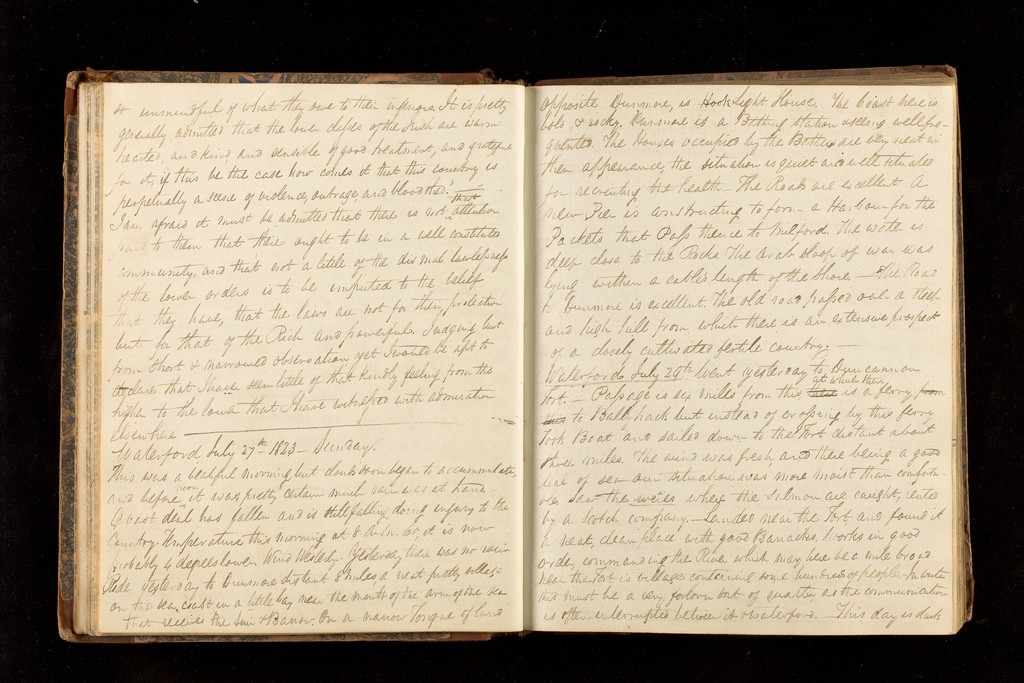 so unmindful of what they owe to their inferiors. It is pretty
generally admitted that the lower classes of the Irish are warm
hearted, and kind and sensible of good treatment, and grateful
for it, if this be the case how comes it that this country is
perpetually a scene of violence, outrage, and bloodshed?
I am afraid it must be admitted that there is not that attention
paid to them that there ought to be in a well constituted
community, and that not a little of the dismal lawlessness
of the lower orders is to be imputed to the belief
that they have, that the laws are not for their protection
but for that of the Rich and powerful. Judging but
from short & narrowed observation yet I would be apt to
declare that I have seen little of that kindly feeling from the
higher to the lower that I have witnessed with admiration
elsewhere
Waterford July 27th 1823 - Sunday.
This was a beautiful morning, but clouds soon began to accummulate,
and before noon it was pretty certain much rain was at hand. -
A vast deal has fallen and is still falling doing injury to the
Country. Temperature this morning at 8 A.M. 60, it is now
probably 4 degrees lower. Wind Westerly. Yesterday there was no rain
Rode yesterday to Dunmore distant 8 miles, a neat pretty village
on the sea coast in a little bay near the mouth of the arm of the sea
that receives the Suir & Barrow. On a narrow Tongue of land
opposite Dunmore, is Hook Light House. The Coast here is
bold & rocky. Dunmore is a Bathing station & seems well fre-
quented. The Houses occupied by the Bathers are very neat in
their appearance, the situation is quiet and well situated
for recruiting the health - The Roads are excellent A
new Pier is constructing to form a Harbour for the
Packets that Pass thence to Milford. The water is
deep close to the Rocks The Arab sloop of war was
lying within a cable's length of the Shore - The Road
to Dunmore is excellent. The old road passed over a steep
and high hill from which there is an extensive prospect
of a closely cultivated fertile country. -
Waterford July 29th Went yesterday to Duncannon
Fort. - Passage is six miles from this, at which there is a ferry from
this to Ballyhack but instead of crossing by this ferry
Took Boat and sailed down to the Fort distant about
three miles. The wind was fresh and there being a good
deal of sea our situation was more moist than comfort-
able. Saw the weirs where the Salmon are caught, rented
by a Scotch company. - Landed near the Fort and found it
a neat, clean place with good Barracks & works in good
order, commanding the River which may here be a mile broad.
Near the Fort is village containing some hundreds of people - In winter
this must be a very forlorn sort of quarter as the communication
is often interrupted between it & Waterford. - This day is dark